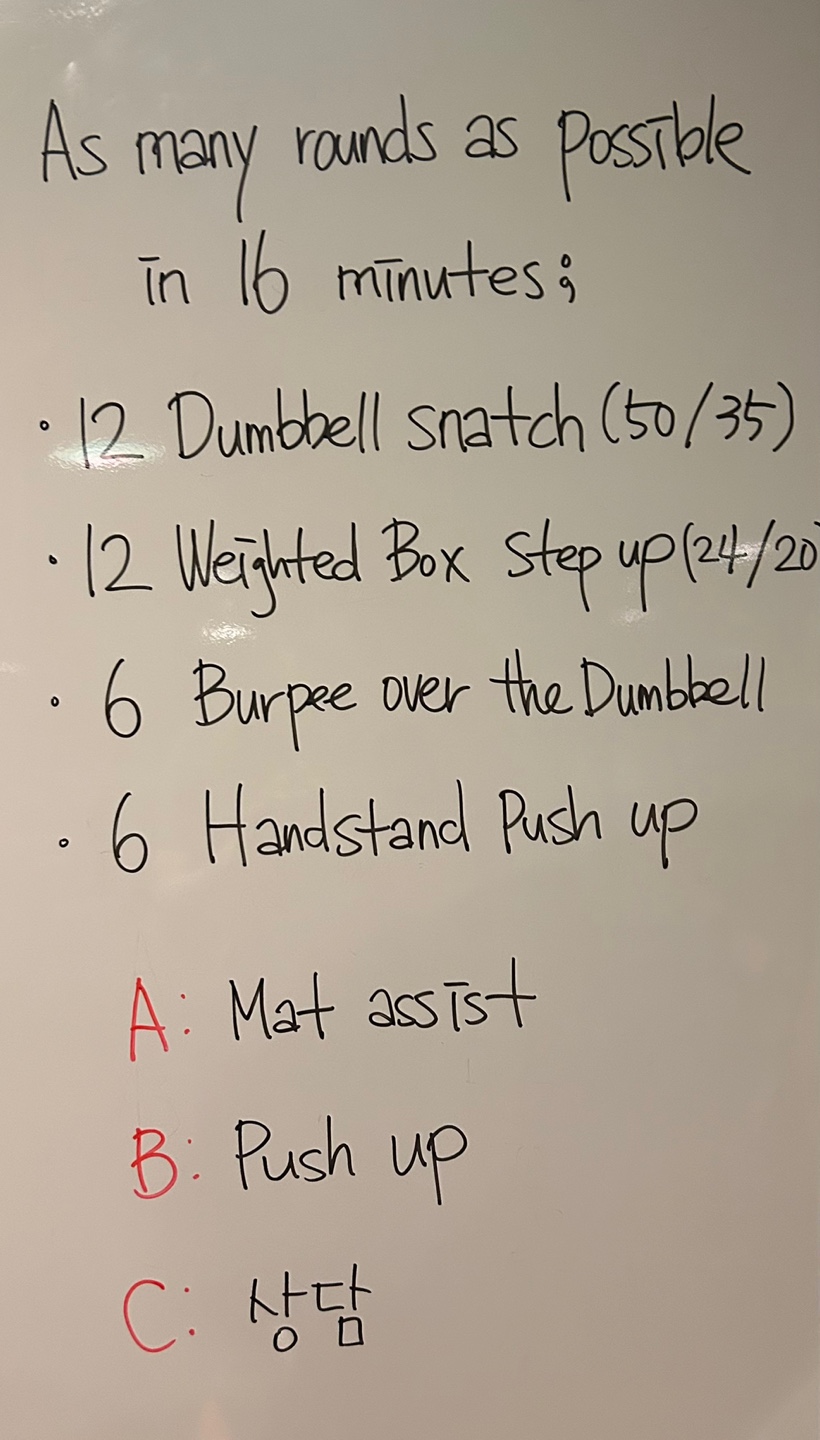 As many rounds as possible
in 16 minutes;
· 12 Dumbbell snatch (50/35)
· 12 Weighted Box Step up (24/20)
· 6 Burpee over the Dumbbell
· 6 Handstand Push up
A: Mat assist
B: Push up
C: 상담